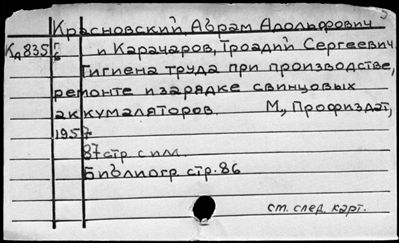 Красновский, Абрам Адольфович
Кд835 и Карачаров, Троадий Сергеевич.
Гигиена труда при производстве,
ремонте и зарядке свинцовых
аккумаляторов. М., Профиздат,
1957
87 стр. с илл.
Библиогр. стр. 86
ст. след. карт.